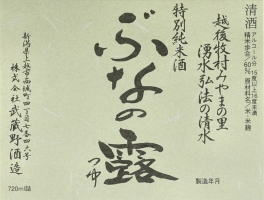 清酒
アルコール分 15度以上16度未満
精米歩合/60% 原材料名/米・米麹
越後牧村みやまの里
湧水弘法の清水
特別純米酒
ぶなの露
つゆ
新潟県上越市西城町四丁目七番四六号
株式会社武蔵野酒造
720ml詰
製造年月